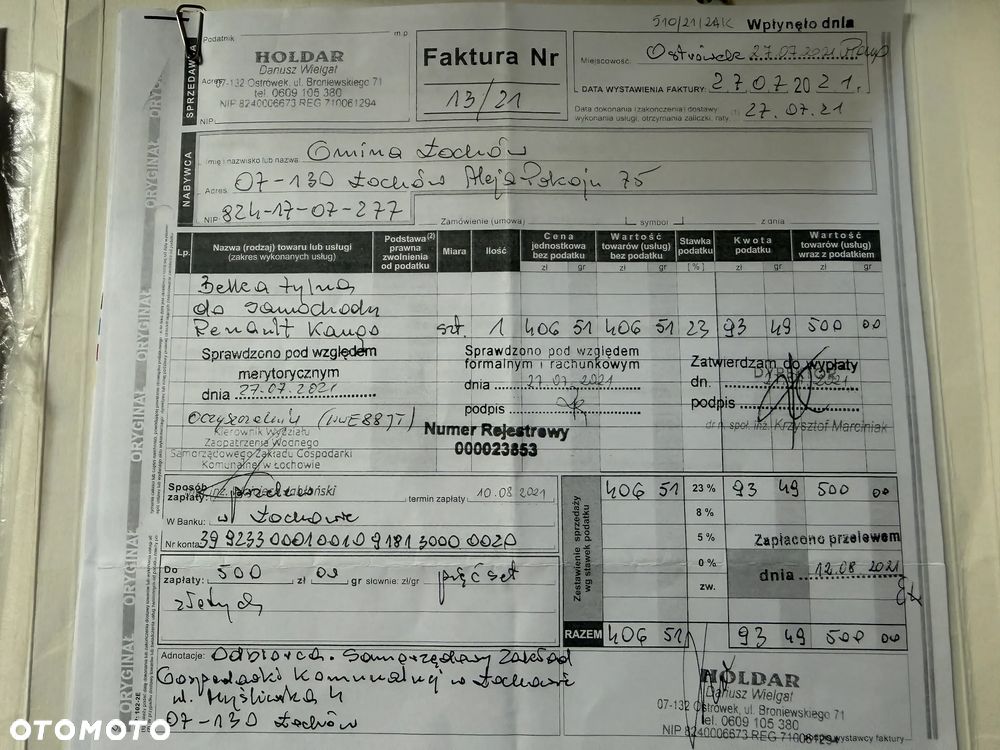 510/21/ZAK Wpłynęło dnia
Podatnik
m.p
HOLDAR
Dariusz Wielgat
07-132 Ostrówek, ul. Broniewskiego 71
tel. 0609 105 380
NIP 8240006673 REG 710061294
Adres
NIP
SPRZEDAWCA
Faktura Nr
13/21
Miejscowość: Ostrówek 27.07.2021
DATA WYSTAWIENIA FAKTURY: 27.07.2021r.
Data dokonania i zakończenia dostawy
wykonania usługi, otrzymania zaliczki, raty (1) 27.07.21
NABYWCA
Imię i nazwisko lub nazwa Gmina Łochów
Adres 07-130 Łochów Aleja Pokoju 75
NIP 824-17-07-277
Zamówienie (umowa) symbol z dnia
Lp. Nazwa (rodzaj) towaru lub usługi (zakres wykonanych usług) Podstawa(2) prawna zwolnienia od podatku Miara Ilość Cena jednostkowa bez podatku Wartość towarów (usług) bez podatku Stawka podatku Kwota podatku Wartość towarów (usług) wraz z podatkiem
zł gr zł gr [%] zł gr zł gr
Belka tylna
do samochodu
Renault Kango szt. 1 406 51 406 51 23 93 49 500 00
Sprawdzono pod względem
merytorycznym
dnia 27.07.2021
Sprawdzono pod względem
formalnym i rachunkowym
dnia 27.07.2021
podpis
Zatwierdzam do wypłaty
dn.
podpis
dr n. społ. inż. Krzysztof Marciniak
Oczyszczalnia (WWE88JT)
Kierownik Wydziału
Zaopatrzenia Wodnego
Samorządowego Zakładu Gospodarki
Komunalnej w Łochowie
Numer Rejestrowy
000023853
Sposób
zapłaty: przelew
termin zapłaty 10.08 2021
W Banku: w Łochowie
Nr konta 39 9233 0001 0010 9181 3000 0020
Do
zapłaty: 500 zł 00 gr słownie: zł/gr pięćset
złotych
Zestawienie sprzedaży
wg stawek podatku
406 51 23 % 93 49 500 00
8 %
5 %
0 %
zw.
Zapłacono przelewem
dnia 12.08 2021
RAZEM 406 51 93 49 500 00
Adnotacje: Odbiorca. Samorządowy Zakład
Gospodarki Komunalnej w Łochowie
ul. Myśliwska 4
07-130 Łochów
HOLDAR
Dariusz Wielgat
07-132 Ostrówek, ul. Broniewskiego 71
tel. 0609 105 380
NIP 8240006673 REG 710061294
wystawcy faktury
ORYGINAŁ
ORYGINAŁ
ORYGINAŁ
ORYGINAŁ
ORYGINAŁ
ORYGINAŁ
102-2E
OTOMOTO